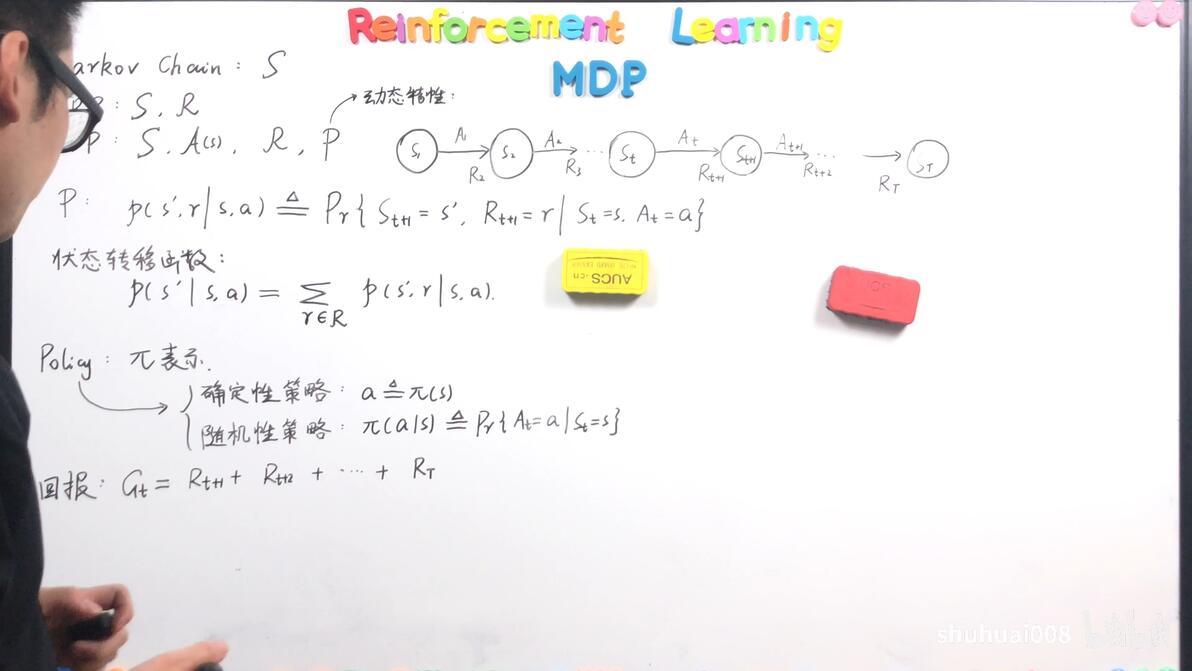 Reinforcement Learning
MDP
arkov Chain: S
RP: S, R
DP: S, A(s), R, P → 动态特性:
S₁ A₁ R₂ S₂ A₂ R₃ ... Sₜ Aₜ Rₜ₊₁ Sₜ₊₁ Aₜ₊₁ Rₜ₊₂ ... R_T S_T
P: p(s', r | s, a) ≜ Pr{ Sₜ₊₁ = s', Rₜ₊₁ = r | Sₜ = s, Aₜ = a }
状态转移函数:
p(s' | s, a) = ∑ r∈R p(s', r | s, a).
AUCS.cn
Policy: π表示.
确定性策略: a ≜ π(s)
随机性策略: π(a|s) ≜ Pr{ Aₜ = a | Sₜ = s }
回报: Gₜ = Rₜ₊₁ + Rₜ₊₂ + ... + R_T
shuhuai008